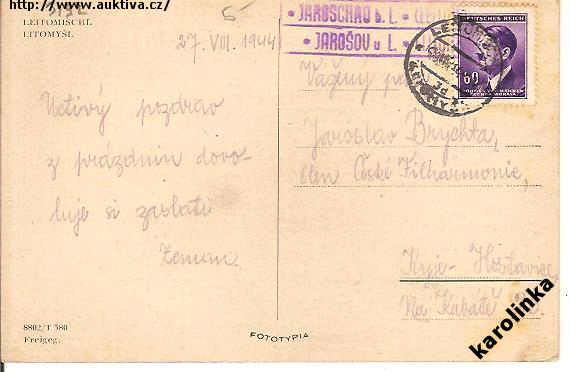 http://www.auktiva.cz/
LEITOMISCHL
LITOMYŠL
5
27. VIII. 1944
JAROSCHAU b. L.
JAROŠOV u L.
DEUTSCHES REICH
60
BÖHMEN U. MÄHREN
ČECHY A MORAVA
Uctivý pozdrav
z prázdnin dovo-
luje si zaslati
Zeman.
Vážený pan
Jaroslav Brychta,
člen České Filharmonie,
Kyje - Hostavice
Na Kabátě
8802/T 580
Freigeg.
FOTOTYPIA
karolinka